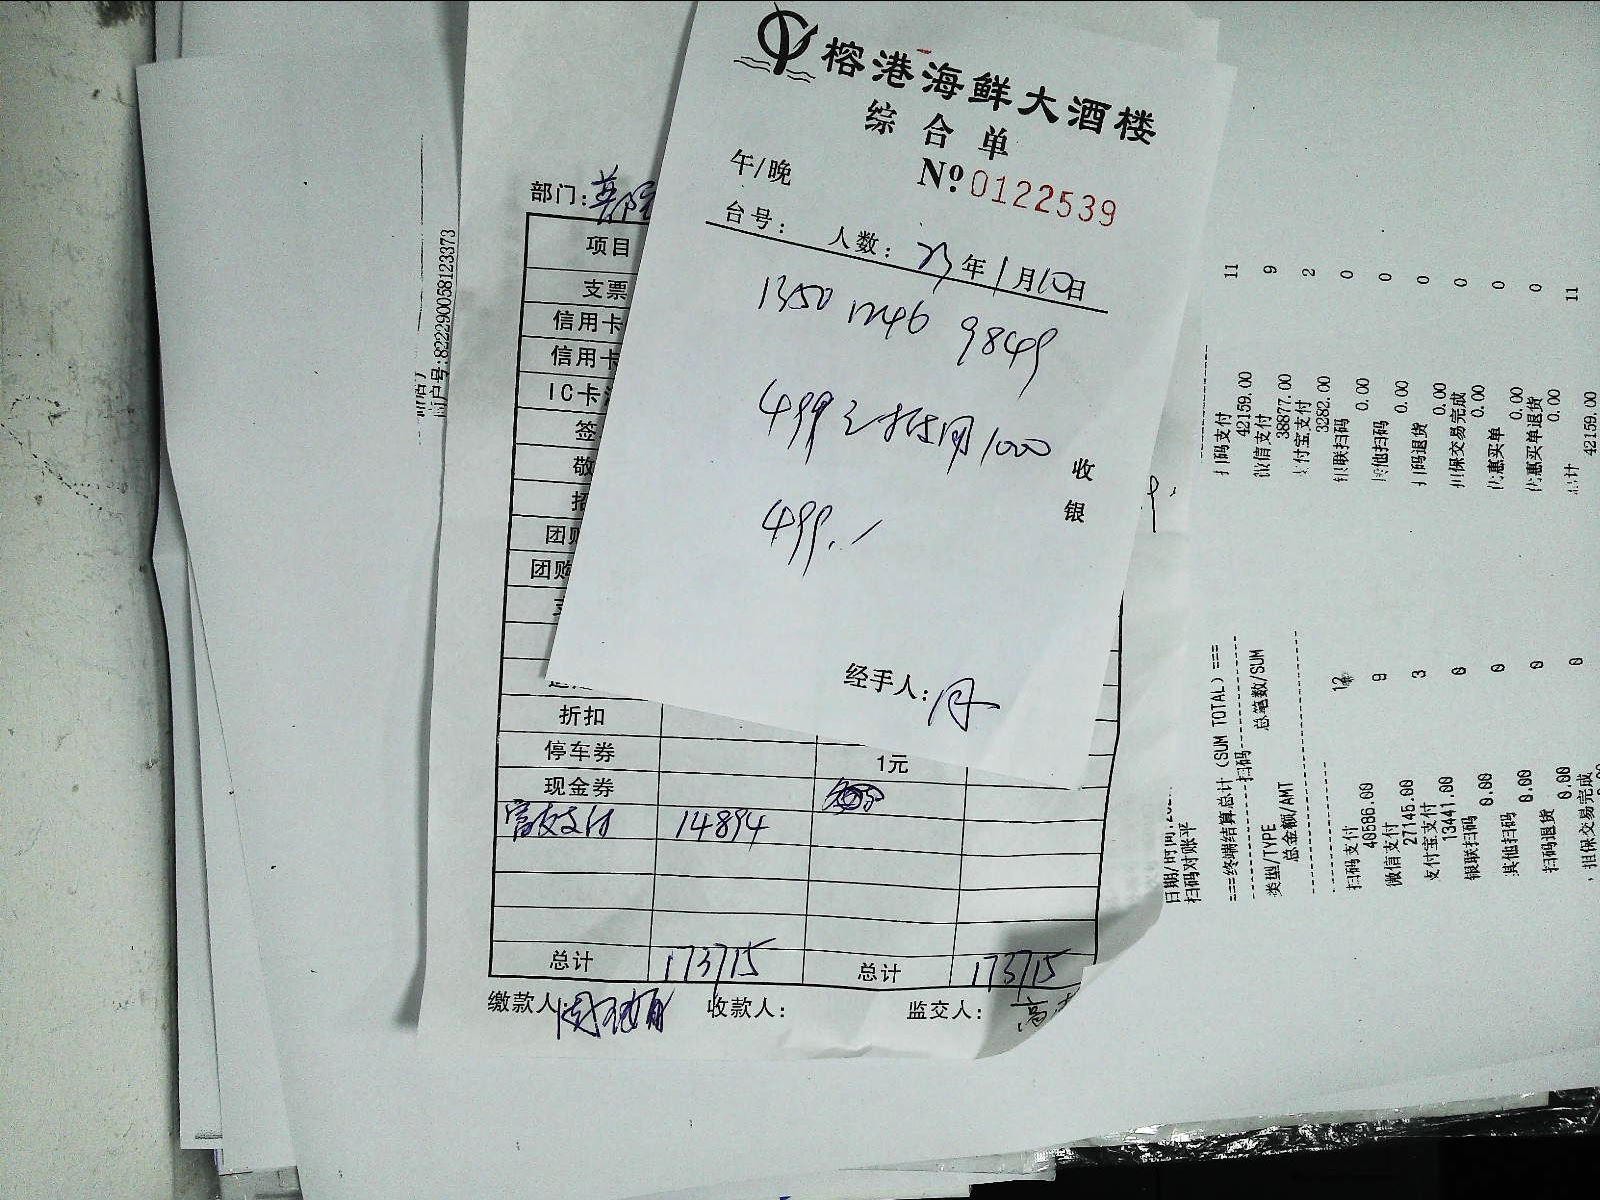 榕港海鲜大酒楼
综合单
午/晚
№ 0122539
台号: 人数: 23年1月10日
1350 1246 9849
499 1000
499.
收银
经手人:
部门:
项目
支票
信用卡
信用卡
IC卡
签
敬
招
团购
团购
折扣
停车券 1元
现金券
支付 14894
总计 173715 总计 173715
缴款人: 收款人: 监交人: 高
商户号:82229005812337​3
扫码支付 11
42159.00
微信支付 9
38877.00
支付宝支付 2
3282.00
银联扫码 0
0.00
其他扫码 0
0.00
扫码退货 0
0.00
担保交易完成 0
0.00
优惠买单 0
0.00
优惠买单退货 0
0.00
总计 11
42159.00
日期/时间:
扫码对账平
===终端结算总计 (SUM TOTAL) ===
扫码
类型/TYPE 总笔数/SUM
总金额/AMT
扫码支付 12
40586.00
微信支付 9
27145.00
支付宝支付 3
13441.00
银联扫码 0
0.00
其他扫码 0
0.00
扫码退货 0
0.00
担保交易完成 0